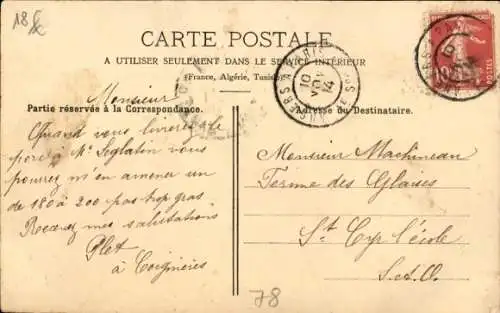 18 fc
CARTE POSTALE
A UTILISER SEULEMENT DANS LE SERVICE INTÉRIEUR
(France, Algérie, Tunisie)
Partie réservée à la Correspondance.
Adresse du Destinataire.
Monsieur
Quand vous livrerez le
porc à Mr Seglatin vous
pourrez m'en amener un
de 180 à 200 pas trop gras
Recevez mes salutations
Plet
à Coignières
Monsieur Machineau
Ferme des Glaises
St Cyr l'école
S.&.O.
10
14
10
POSTES
78